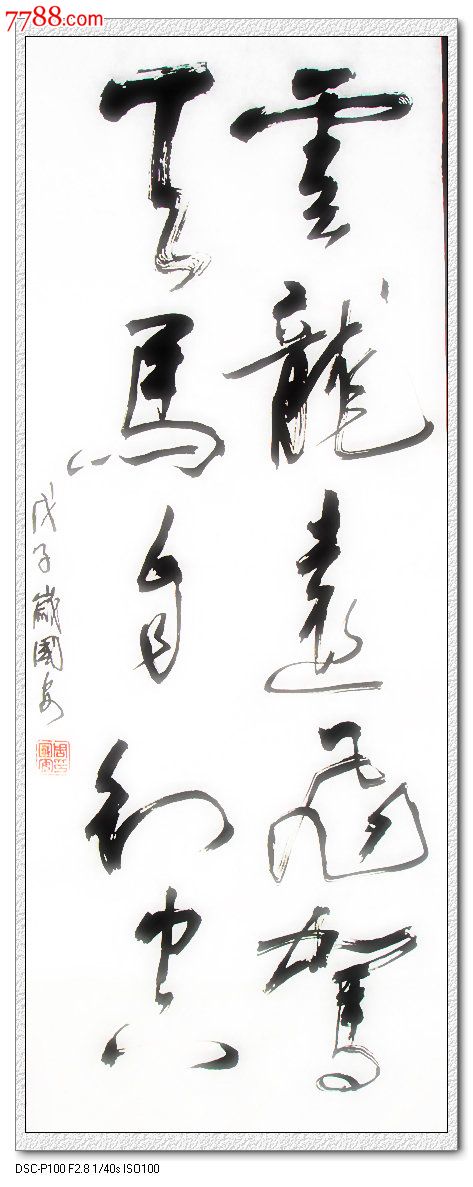 7788.com
雲龍遠飛駕
天馬自行空
戊子歲國安
DSC-P100 F2.8 1/40s ISO100